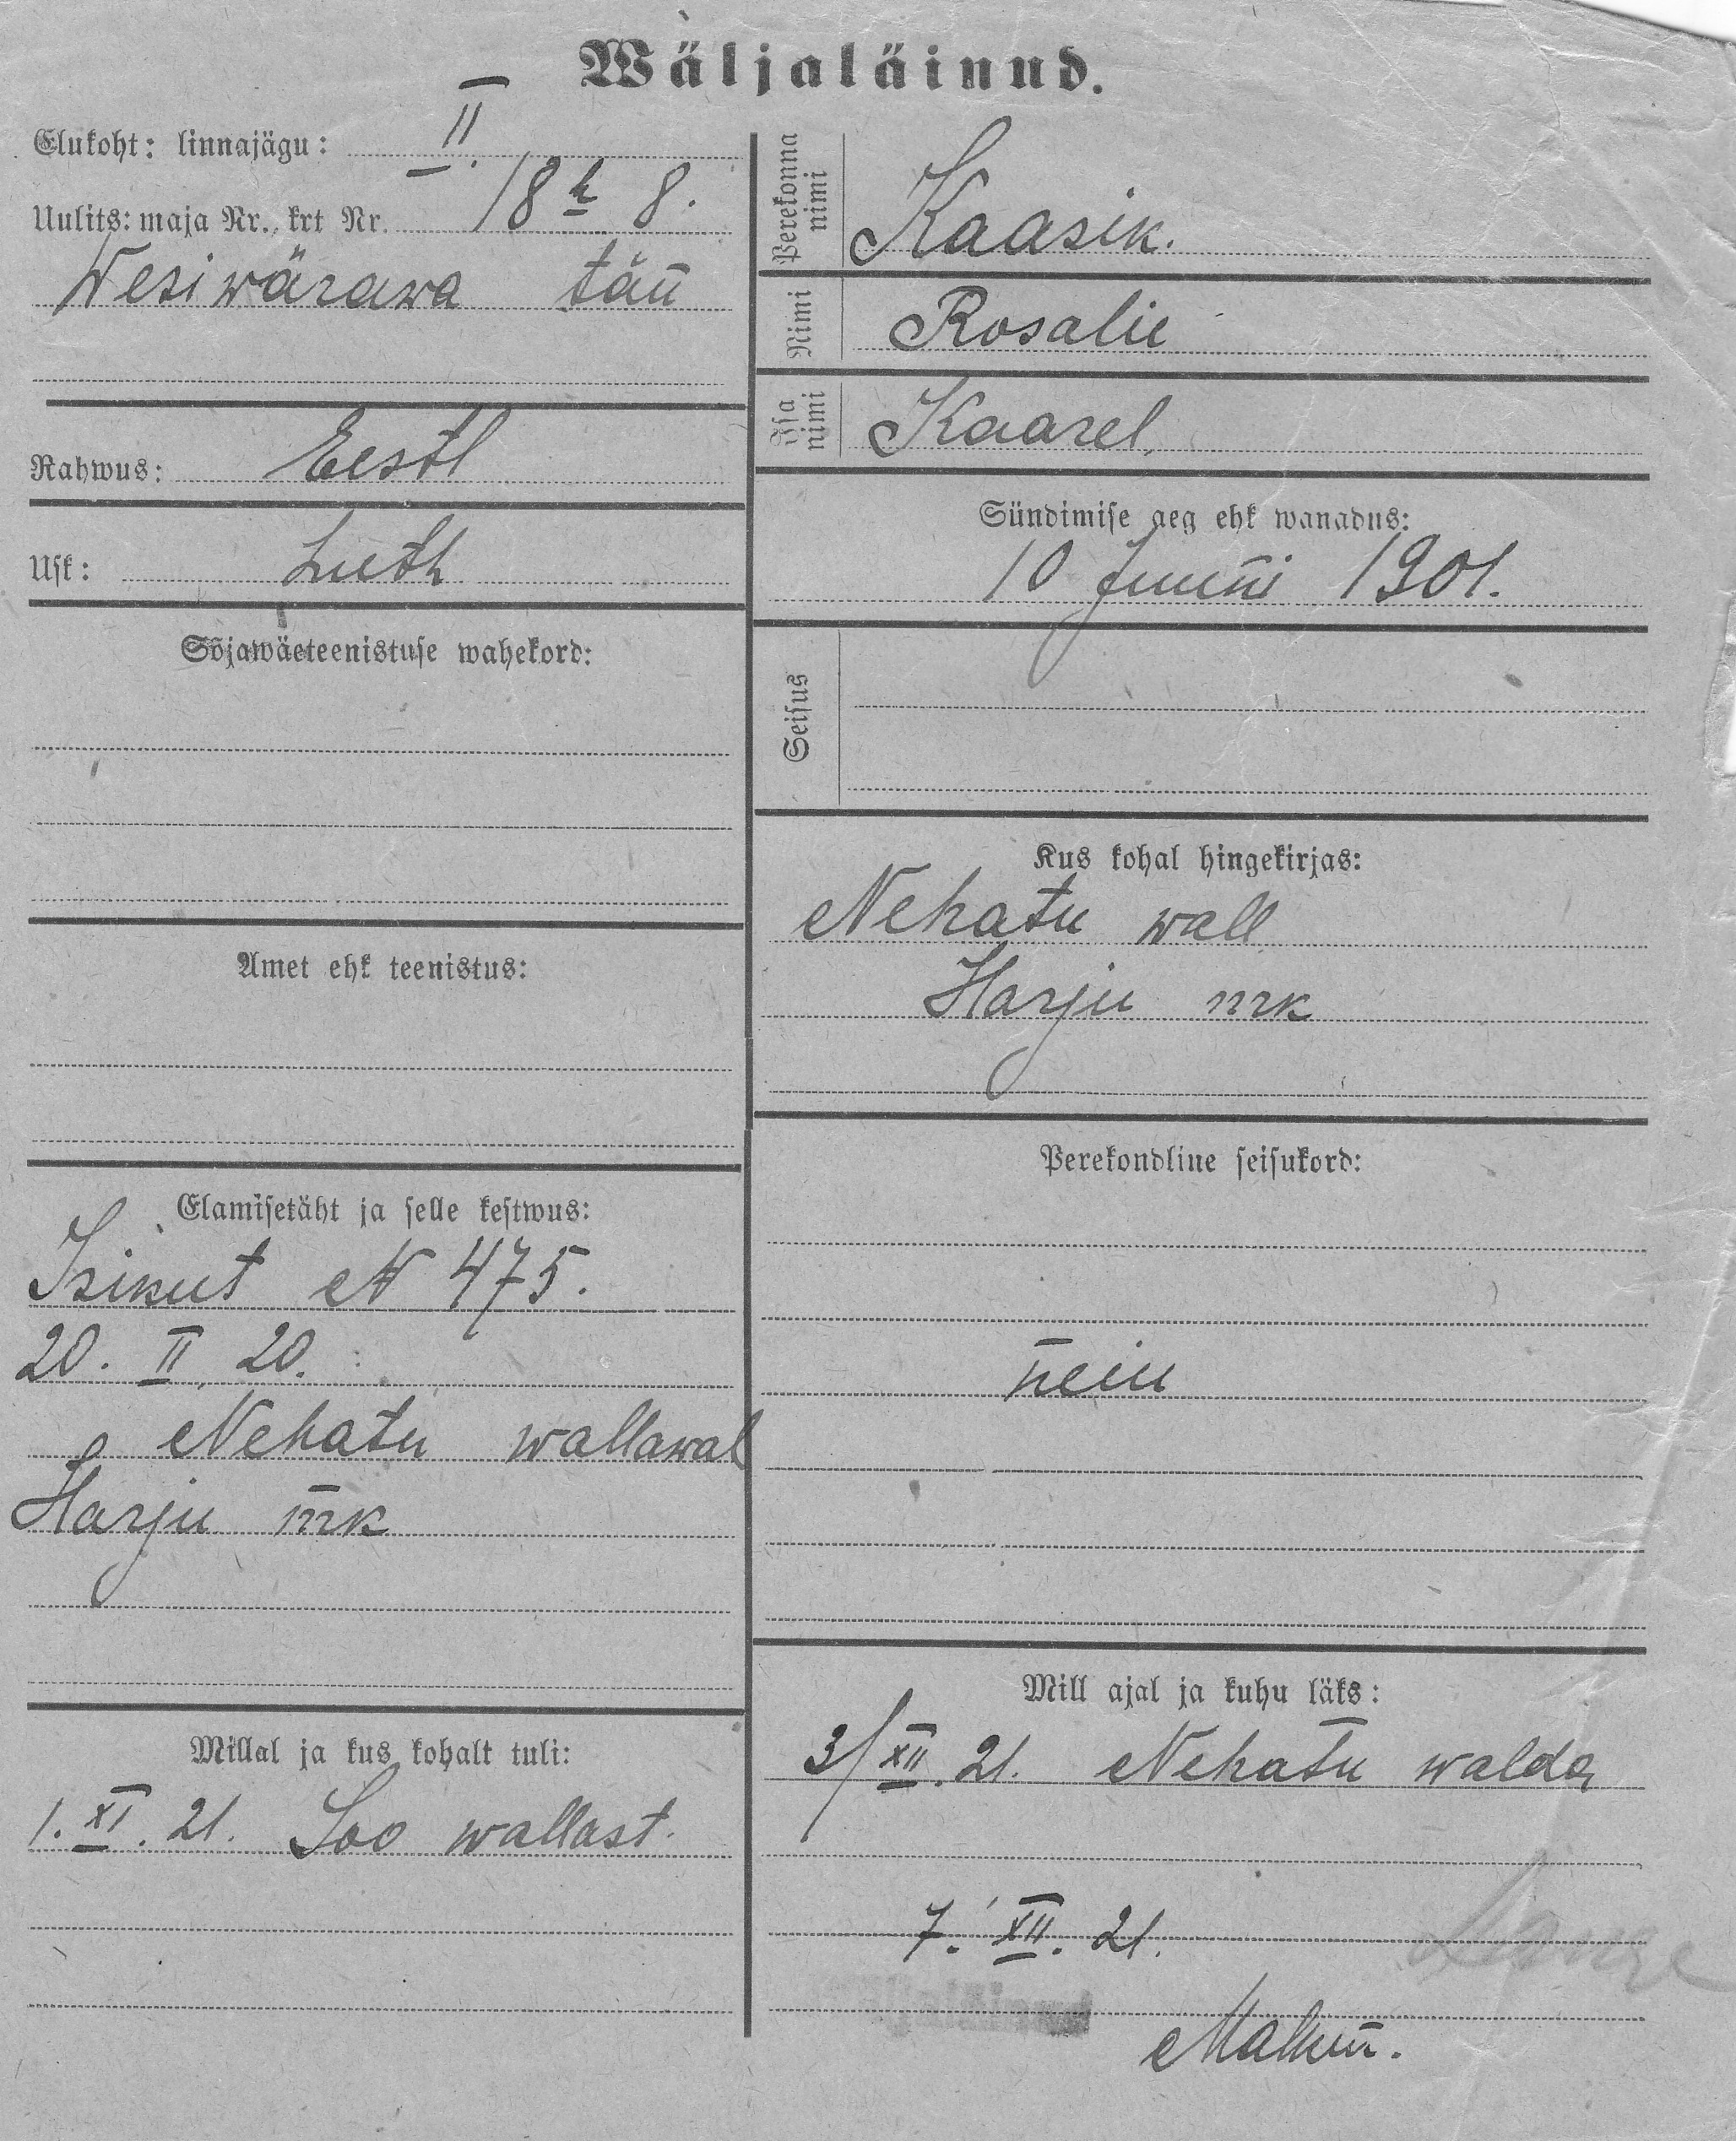 Wäljaläinud.
Elukoht: linnajägu: II.
Uulits: maja Nr., krt Nr. 18 8.
Wesiwärawa tän̄
Rahwus: Eestl
Usk: Luth
Sõjawäeteenistuse wahekord:
Amet ehk teenistus:
Elamisetäht ja selle kestwus:
Isikut № 475.
20. II. 20.
Nehatu wallawal
Harju mrk
Millal ja kus kohalt tuli:
1. XI. 21. Soo wallast.
Perekonna nimi
Kaasik.
Nimi
Rosalie
Isa nimi
Kaarel,
Sündimise aeg ehk wanadus:
10 Juuni 1901.
Seisus
Kus kohal hingekirjas:
Nehatu wall
Harju mrk
Perekondline seisukord:
neiu
Mill ajal ja kuhu läks:
3/XII. 21. Nehatu walda
7. XII. 21.